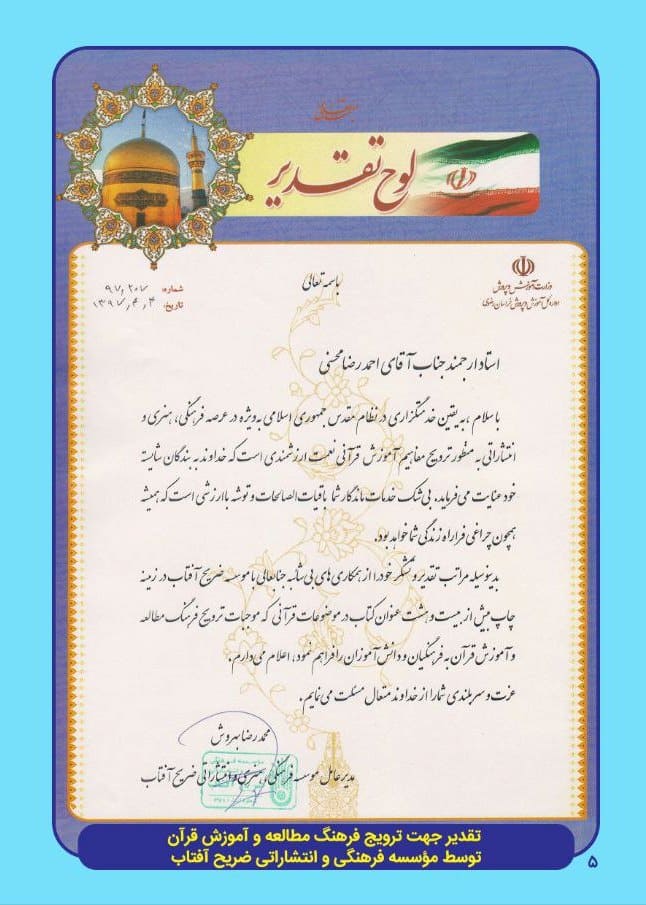 بسمه تعالی
لوح تقدیر
وزارت آموزش و پرورش
اداره کل آموزش و پرورش خراسان رضوی
باسمه تعالی
شماره: ۹۷٫۲۰۷
تاریخ: ۱۳۹۷٫۴٫۴
استاد ارجمند جناب آقای احمدرضا محسنی
با سلام، به یقین خدمتگزاری در نظام مقدس جمهوری اسلامی به ویژه در عرصه فرهنگی، هنری و
انتشاراتی به منظور ترویج مفاهیم آموزش قرآنی نعمت ارزشمندی است که خداوند به بندگان شایسته
خود عنایت می فرماید. بی شک خدمات ماندگار شما باقیات الصالحات و توشه با ارزشی است که همیشه
همچون چراغی فرا راه زندگی شما خواهد بود.
بدینوسیله مراتب تقدیر و تشکر خود را از همکاری های بی شائبه جنابعالی با موسسه ضریح آفتاب در زمینه
چاپ بیش از بیست و هشت عنوان کتاب در موضوعات قرآنی که موجبات ترویج فرهنگ مطالعه
و آموزش قرآن به فرهنگیان و دانش آموزان را فراهم نمود، اعلام می دارم.
عزت و سربلندی شما را از خداوند متعال مسئلت می نمایم.
محمدرضا بهروش
مدیرعامل موسسه فرهنگی، هنری و انتشاراتی ضریح آفتاب
تقدیر جهت ترویج فرهنگ مطالعه و آموزش قرآن
توسط مؤسسه فرهنگی و انتشاراتی ضریح آفتاب
۵